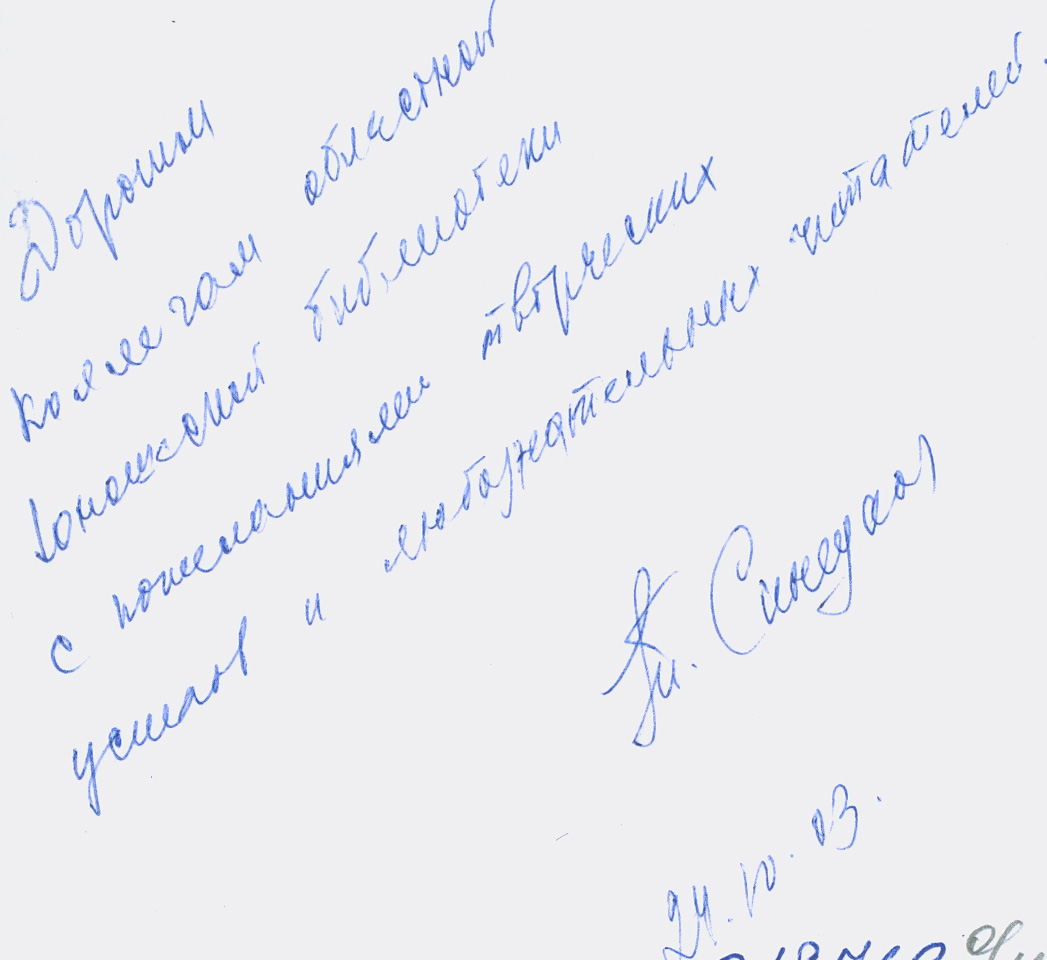 Дорогим
коллегам областной
юношеской библиотеки
с пожеланиями творческих
успехов и любознательных читателей.
24.10.03.